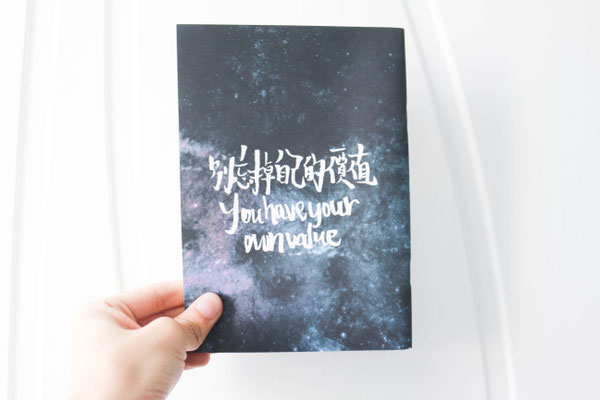 別忘掉自己的價值
You have your
own value